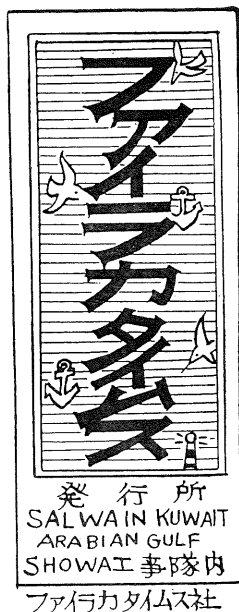 ファイラカタイムス
発行所
SALWA IN KUWAIT
ARABIAN GULF
SHOWA工事隊内
ファイラカタイムス社